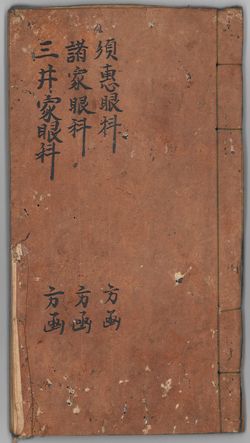 須恵眼科 方函
諸家眼科 方函
三井家眼科 方函